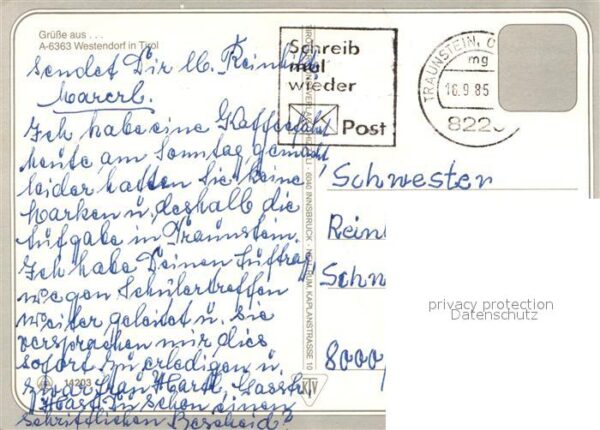 Grüße aus . . .
A-6363 Westendorf in Tirol
sendet Dir lb. Reinhild
Marerl.
Ich habe eine Kaffeefahrt
heute, am Sonntag, gemacht
leider hatten sie keine
Marken u. deshalb die
Aufgabe in Traunstein.
Ich habe Deinen Auftrag,
wegen Schülertreffen
weiter geleitet u. sie
versprachen mir dies
sofort zu erledigen u.
zwar Frau Hartl, Gassl
Hast Du schon einen
schriftlichen Bescheid?
Schreib
mal
wieder
Post
TRAUNSTEIN, O
mg
16.9.85
822
6040 INNSBRUCK - KAPLANSTRASSE 10
Schwester
Rein
Schw
8000
privacy protection
Datenschutz
14203
KTV